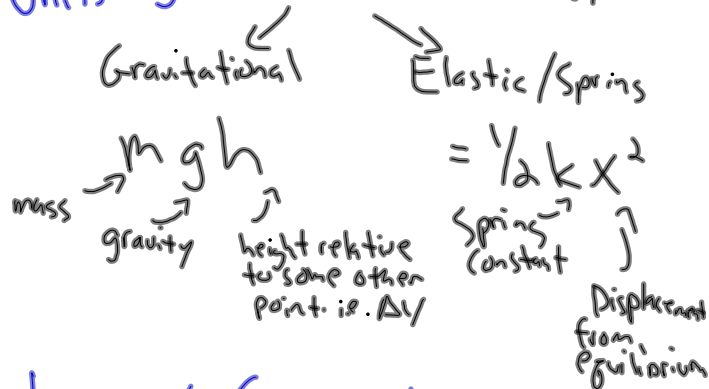 Gravitational
Elastic/Spring
mgh
= 1/2 k x²
mass
gravity
height relative
to some other
point. i.e. Δy
Spring
Constant
Displacement
from
equilibrium